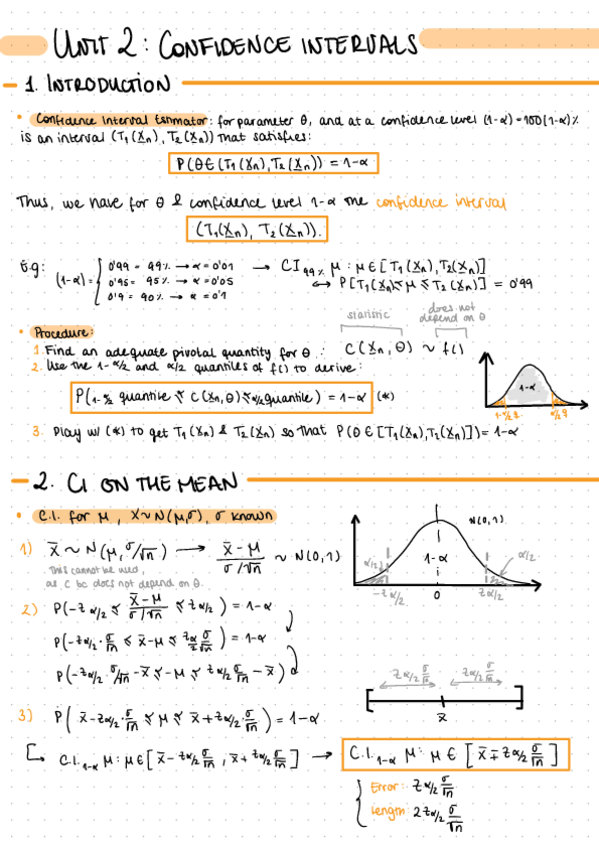 UNIT 2: CONFIDENCE INTERVALS
1. INTRODUCTION
• Confidence Interval Estimator: for parameter θ, and at a confidence level (1-α)=100(1-α)%
is an interval (T₁(X̲n), T₂(X̲n)) that satisfies:
P(θ∈(T₁(X̲n),T₂(X̲n)) = 1-α
Thus, we have for θ & confidence level 1-α the confidence interval
(T₁(X̲n), T₂(X̲n)).
E.g: (1-α)=
0'99 = 99% → α=0'01
0'95 = 95% → α=0'05
0'9 = 90% → α=0'1
→ CI₉₉% μ : μ∈[T₁(X̲n),T₂(X̲n)]
↔ P[T₁(X̲n)≤μ≤T₂(X̲n)] = 0'99
• Procedure:
statistic
does not depend on θ
1. Find an adequate pivotal quantity for θ : C(X̲n,θ) ~ f()
2. Use the 1-α/2 and α/2 quantiles of f() to derive:
P(1-α/2 quantile ≤ C(X̲n,θ) ≤ α/2 quantile) = 1-α (*)
1-α
1-α/2 q
α/2 q
3. Play w/ (*) to get T₁(X̲n) & T₂(X̲n) so that P(θ∈[T₁(X̲n),T₂(X̲n)]) = 1-α
2. CI ON THE MEAN
• C.I. for μ, X~N(μ,σ), σ known
1) X̄ ~ N(μ, σ/√n) → (X̄-μ)/(σ/√n) ~ N(0,1)
This cannot be used,
as C bc does not depend on θ.
N(0,1)
α/2
1-α
α/2
-zα/2
0
zα/2
2) P(-zα/2 ≤ (X̄-μ)/(σ/√n) ≤ zα/2) = 1-α
P(-zα/2 · σ/√n ≤ X̄-μ ≤ zα/2 σ/√n) = 1-α
P(-zα/2 · σ/√n - X̄ ≤ -μ ≤ zα/2 σ/√n - X̄)
zα/2 σ/√n
zα/2 σ/√n
x̄
3) P(X̄-zα/2 · σ/√n ≤ μ ≤ X̄+zα/2 · σ/√n) = 1-α
C.I.₁₋α μ: μ∈[X̄-zα/2 σ/√n , X̄+zα/2 σ/√n] → C.I.₁₋α μ: μ∈[X̄∓zα/2 σ/√n]
Error: zα/2 σ/√n
Length: 2zα/2 σ/√n